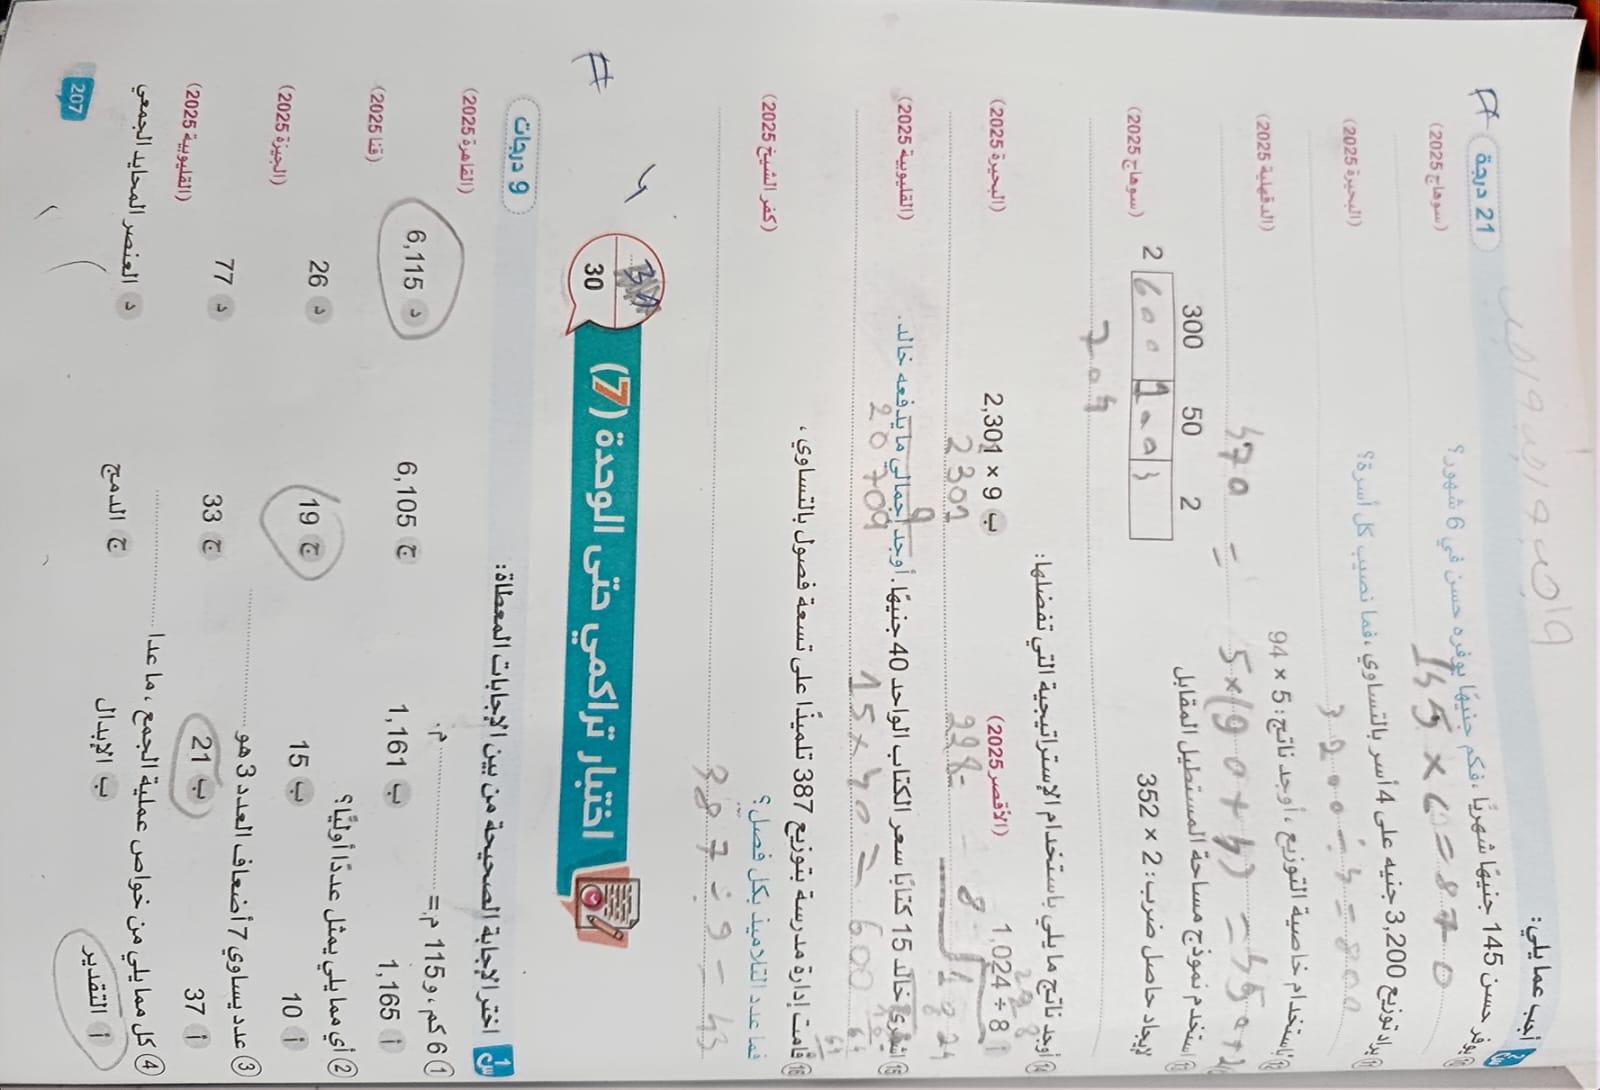 أجب عما يلي:
21 درجة
يوفر حسن 145 جنيهًا شهريًا، فكم جنيهًا يوفره حسن في 6 شهور؟
(سوهاج 2025)
= 870
يراد توزيع 3,200 جنيه على 4 أسر بالتساوي، فما نصيب كل أسرة؟
(البحيرة 2025)
3200 ÷ 4 = 800
باستخدام خاصية التوزيع، أوجد ناتج: 5 × 94
(الدقهلية 2025)
470 =
استخدم نموذج مساحة المستطيل المقابل
لإيجاد حاصل ضرب: 2 × 352
(سوهاج 2025)
300 50 2
2
600 100 4
704
14 أوجد ناتج ما يلي باستخدام الإستراتيجية التي تفضلها:
أ 1,024 ÷ 8
(الأقصر 2025)
ب 2,301 × 9
(البحيرة 2025)
2301
9
20709
15 اشترى خالد 15 كتابًا سعر الكتاب الواحد 40 جنيهًا. أوجد إجمالي ما يدفعه خالد.
(القليوبية 2025)
15 × 40 = 600
16 قامت إدارة مدرسة بتوزيع 387 تلميذًا على تسعة فصول بالتساوي،
فما عدد التلاميذ بكل فصل؟
(كفر الشيخ 2025)
387 ÷ 9 = 43
اختبار تراكمي حتى الوحدة (7)
30
س1 اختر الإجابة الصحيحة من بين الإجابات المعطاة:
9 درجات
1 6 كم، و 115 م = .................... م.
(القاهرة 2025)
أ 1,165 ب 1,161 ج 6,105 د 6,115
2 أي مما يلي يمثل عددًا أوليًّا؟
(قنا 2025)
أ 10 ب 15 ج 19 د 26
3 عدد يساوي 7 أضعاف العدد 3 هو ....................
(الجيزة 2025)
أ 37 ب 21 ج 33 د 77
4 كل مما يلي من خواص عملية الجمع، ما عدا ....................
(القليوبية 2025)
أ التقدير ب الإبدال ج الدمج د العنصر المحايد الجمعي
207